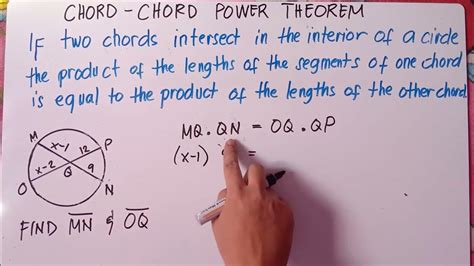 CHORD-CHORD POWER THEOREM
IF two chords intersect in the interior of a circle
the product of the lengths of the segments of one chord
is equal to the product of the lengths of the other chord.
MQ . QN = OQ . QP
(x-1) =
M
x-1
12
P
x-2
Q
9
O
N
FIND MN & OQ